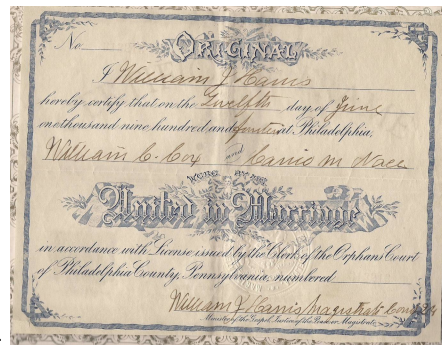 No.
ORIGINAL
I William J Harris
hereby certify that on the Twelfth day of June
one thousand nine hundred and at Philadelphia,
William C. Cox and M
WERE BY ME
United in Marriage
in accordance with License issued by the Clerk of the Orphans Court
of Philadelphia County, Pennsylvania, numbered
William J Harris Magistrate Court
Minister of the Gospel, Justice of the Peace or Magistrate.